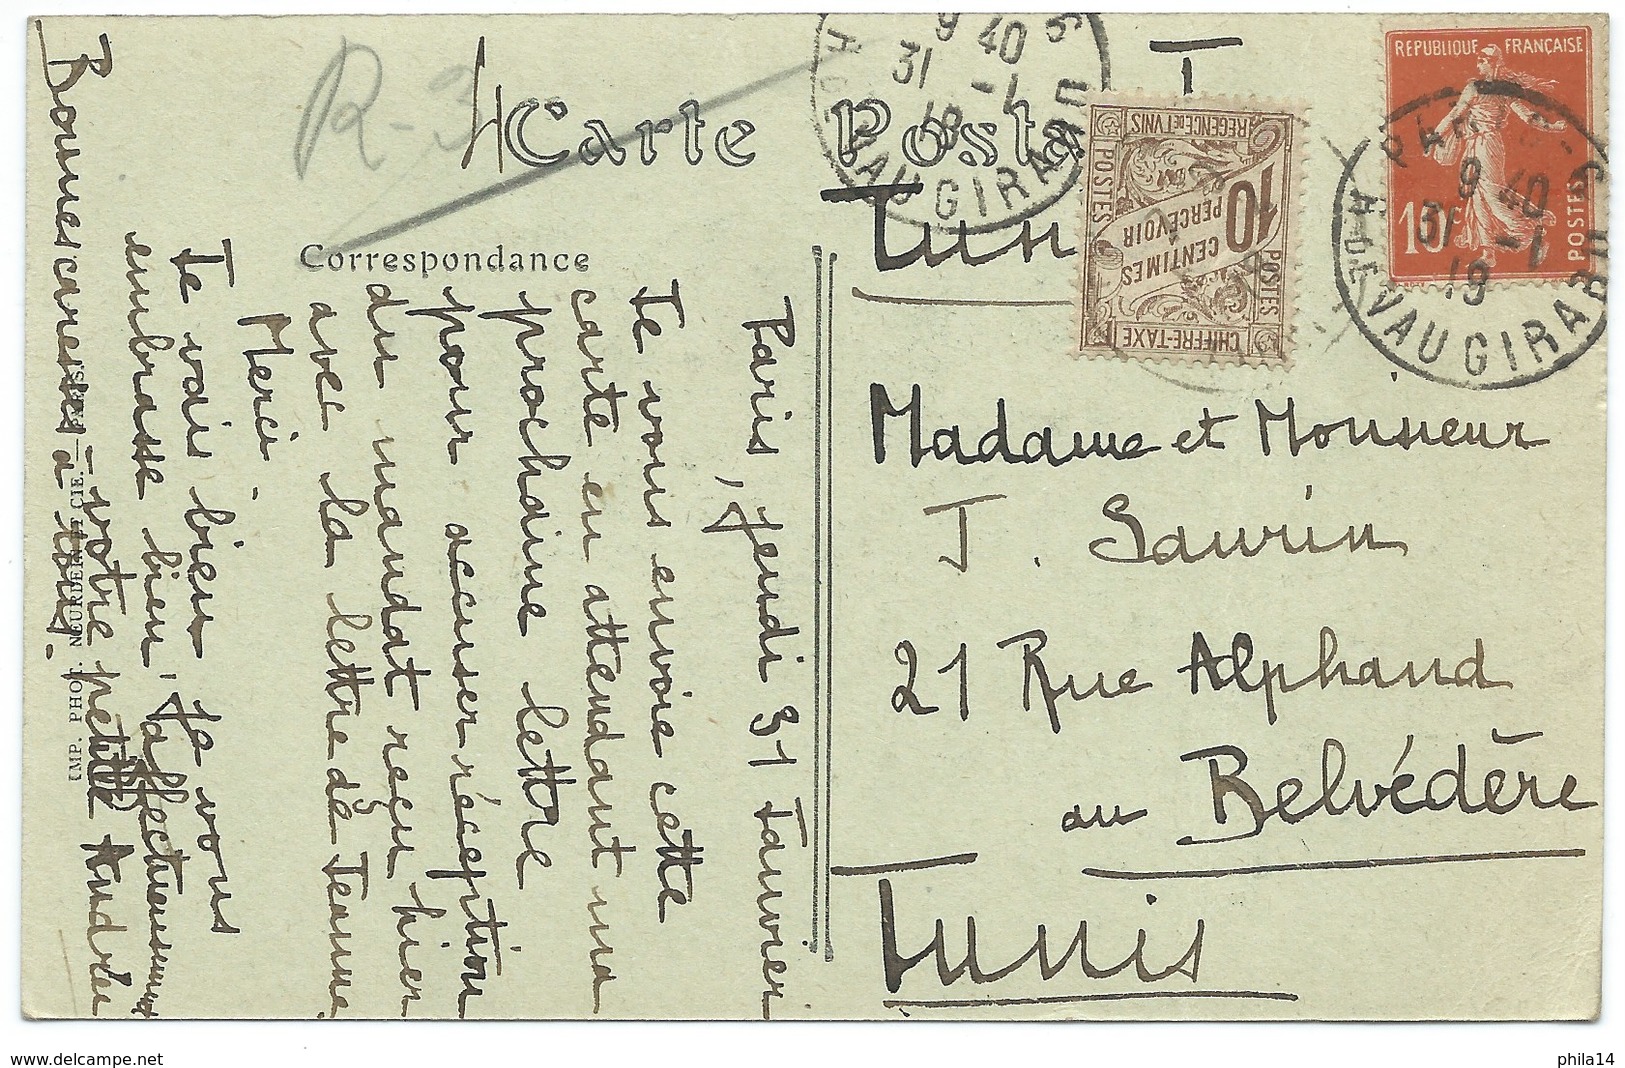 R-3
Carte Posta
Correspondance
T
Tunisie
PARIS
9 40
31 -1
19
R. DE VAUGIRARD
9 40
31 -1
19
VAUGIRARD
REPUBLIQUE FRANÇAISE
10c
POSTES
REGENCE DE TUNIS
POSTES
10
CENTIMES
À
PERCEVOIR
POSTES
CHIFFRE-TAXE
Madame et Monsieur
J. Saurin
21 Rue Alphand
au Belvédère
Tunis
Paris, Jeudi 31 Janvier
Je vous envoie cette
carte en attendant ma
prochaine lettre
pour accuser réception
du mandat reçu hier
avec la lettre de Jeanne
Merci.
Je vais bien, Je vous
embrasse bien affectueusement
votre petite Andrée
Bonnes caresses à tous.
IMP. PHOT. NEURDEIN ET CIE. — PARIS.
www.delcampe.net
phila14